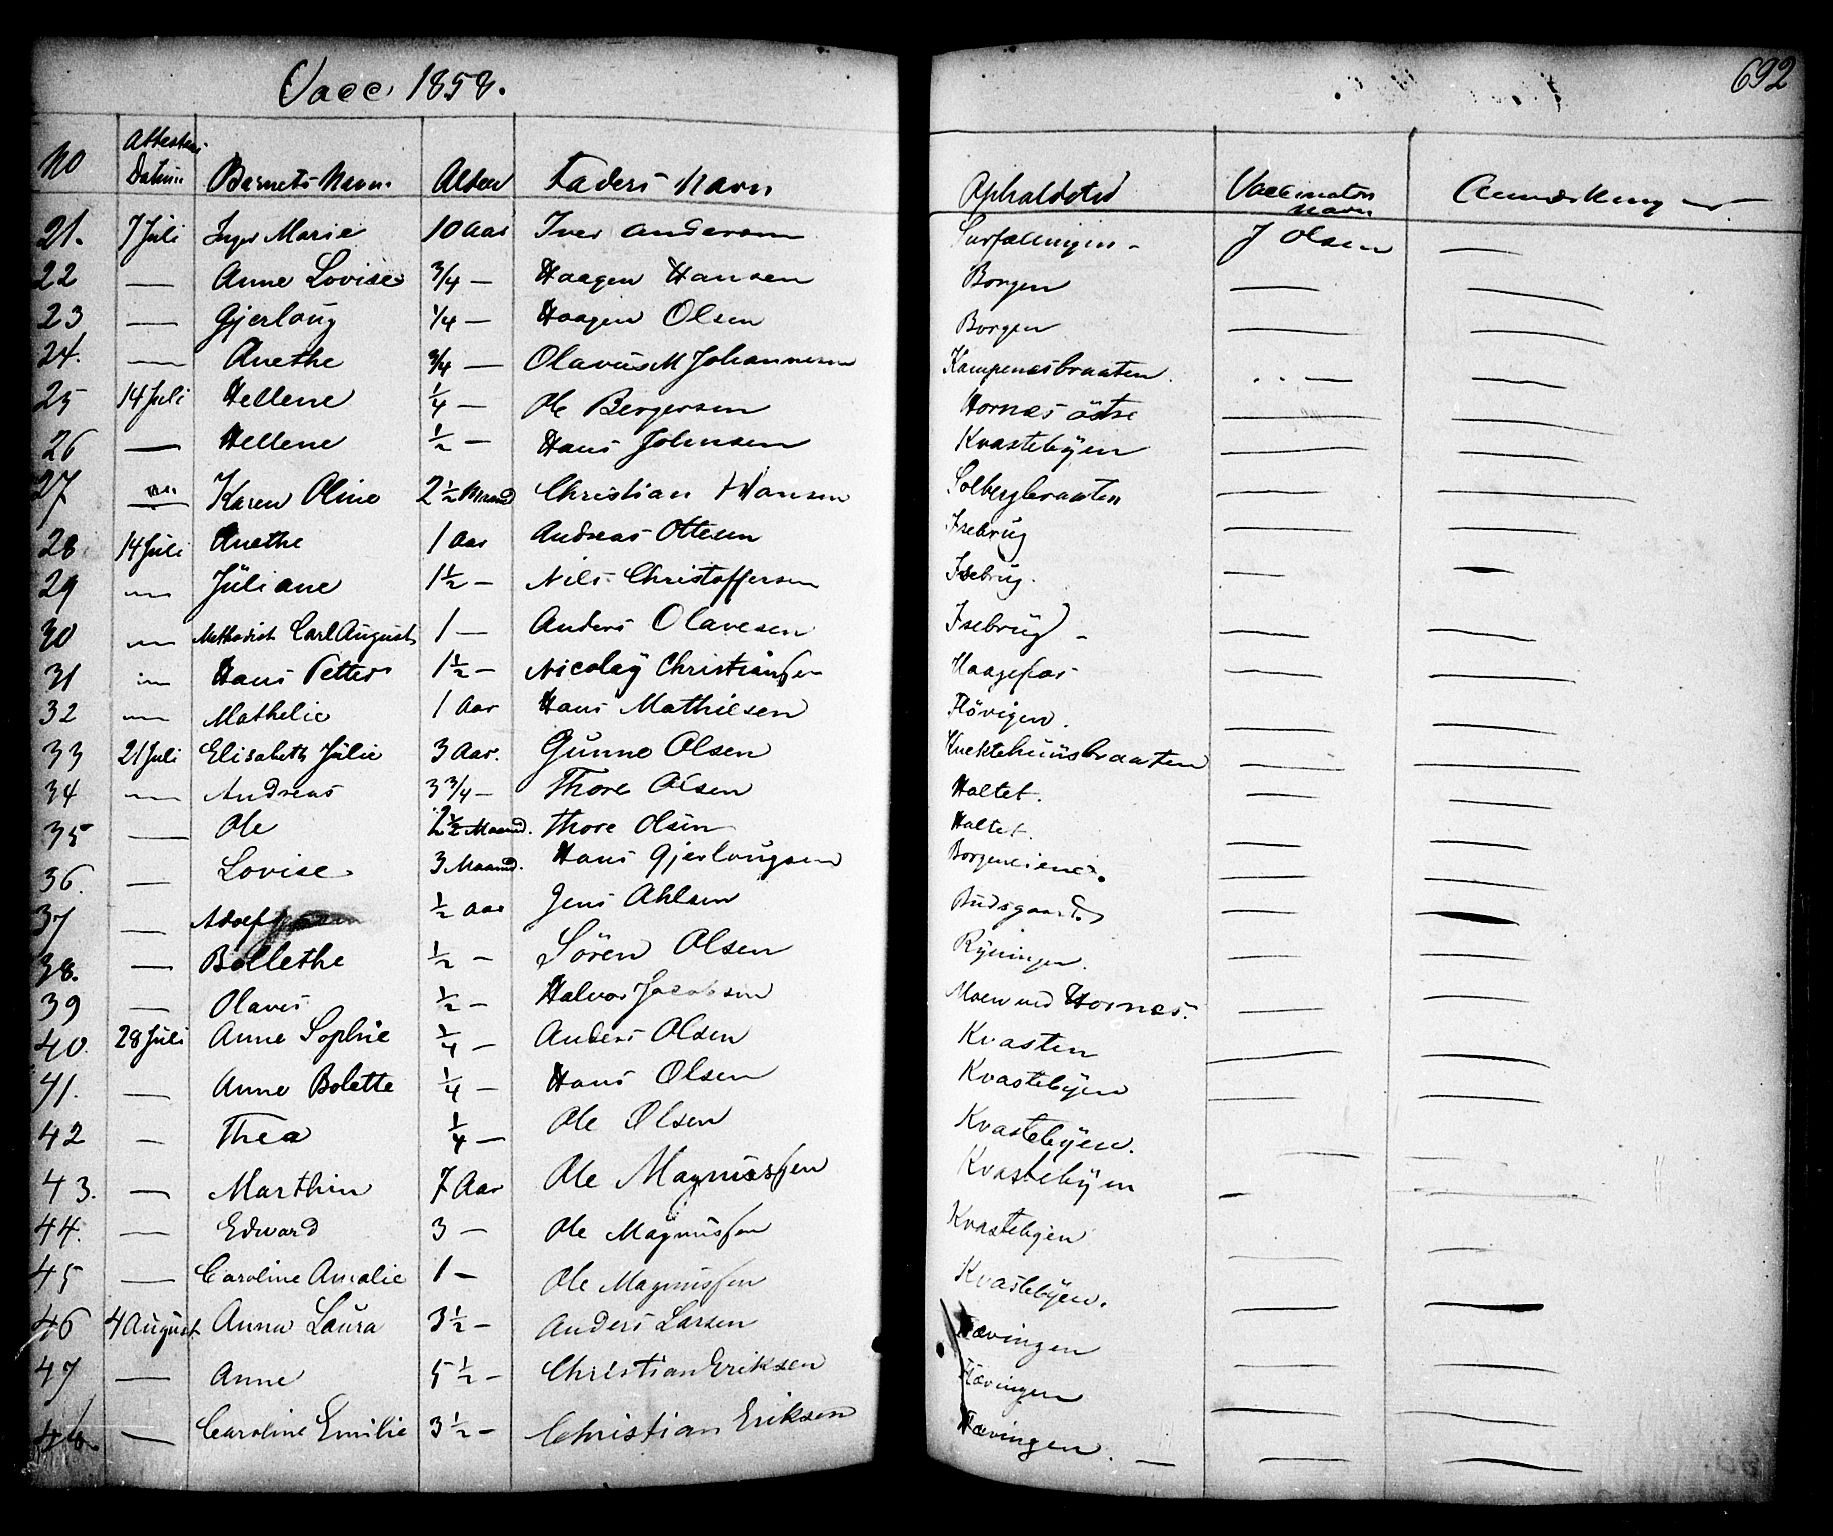 Vacc. 1858.
692
No Attestens Datum Barnets Navn. Alder Faders Navn Opholdsted Vaccinators Navn Anmærkning
21. 7 Juli Inger Marie 10 Aar Iver Andersen J Olsen —
22 — Anne Lovise 3/4 — Haagen Hansen Borgen — —
23 — Gjerloug 1/4 — Haagen Olsen Borgen — —
24. — Anethe 3/4 — Olavus M Johannesen Kampenæsbraaten — —
25 14 Juli Hellene 1/4 — Ole Bergersen Hornæs östre — —
26 — Hellene 1/2 — Hans Johnsen Kvastebÿen — —
27 — Karen Oline 2 1/2 Maaned Christian Hansen Solbergbraaten — —
28 14 Juli Anethe 1 Aar Andreas Ottesen Isebrug — —
29 — Jüliane 1 1/2 — Nils Christoffersen Isebrug. — —
30 — Methodist Carl August 1 — Anders Olavesen Isebrug — — —
31 — Hans Petter 1 1/2 — Nicolaÿ Christiansen Haagefos — —
32 — Mathelie 1 Aar Hans Mathiesen Hövigen. — —
33 21 Juli Elisabeth Jülie 3 Aar. Gunno Olsen Knektehuusbraaten — —
34 — Andreas 3 3/4 — Thore Olsen Holtet. — —
35 — Ole 2 1/2 Maaned. Thore Olsen Holtet. — —
36. — Lovise 3 Maaned. Hans Gjerlougsen Borgeneiene. — —
37 — Adolf 1/2 Aar Jens Ahlsen Budsgaard — —
38. — Bollethe 1/2 — Sören Olsen Ryningen. — —
39 — Olaves 1/2 — Halvor Jacobsen Moen ved Hornæs. — —
40. 28 Juli Anne Sophie 1/4 — Anders Olsen Kvasten — —
41. — Anne Bolette 1/4 — Hans Olsen Kvastebÿen — —
42 — Thea 1/4 — Ole Olsen Kvastebÿen. — —
43. — Marthin 7 Aar Ole Magnussen Kvastebÿen — —
44. — Edward 3 — Ole Magnussen Kvastebyen — —
45 — Caroline Amalie 1 — Ole Magnussen Kvastebÿen. — —
46 4 August Anna Laura 3 1/2 — Anders Larsen Hævingen — —
47 — Anne 5 1/2 — Christian Eriksen Hævingen — —
48. — Caroline Emilie 3 1/2 — Christian Eriksen Hævingen. — — —